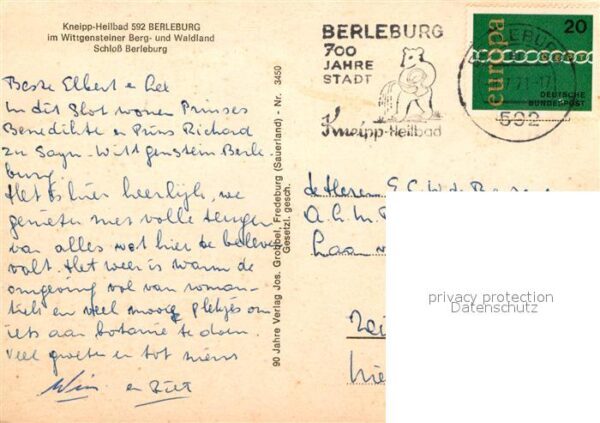 Kneipp-Heilbad 592 BERLEBURG
im Wittgensteiner Berg- und Waldland
Schloß Berleburg
Beste Elbert e
In dit Slot wonen Prinses
Benedikte en Prins Richard
zu Sayn-Wittgenstein Berle-
burg.
Het is hier heerlijk, we
genieten met volle teugen
van alles wat hier te beleven
valt. Het weer is warm de
omgeving vol van roman-
tiek en veel mooie plekjes om
iets aan botanie te doen.
Veel groeten en tot ziens
Wim en
90 Jahre Verlag Jos. Grobbel, Fredeburg (Sauerland) - Nr. 3450
Gesetzl. gesch.
BERLEBURG
700
JAHRE
STADT
Kneipp-Heilbad
592
europa
20
CEPT
DEUTSCHE
BUNDESPOST
de Heren E.C.W. de
A.C.M.
Laan
privacy protection
Datenschutz